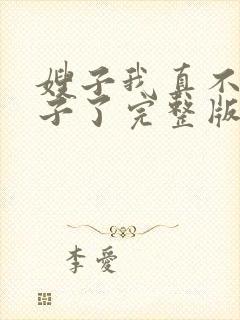 嫂子我真不
子了完整版
李愛